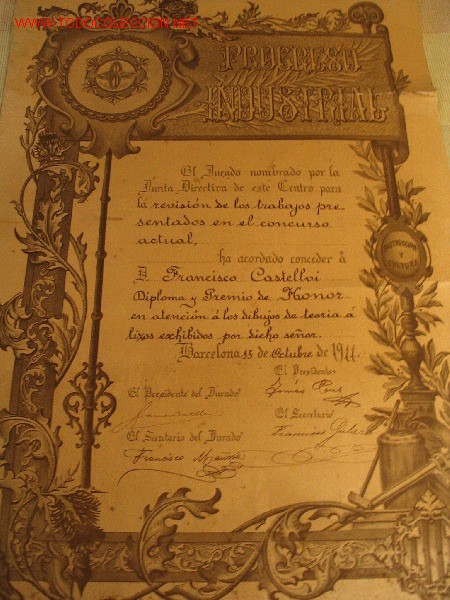 www.todocoleccion.net
PROGRESO
INDUSTRIAL
El Jurado nombrado por la
Junta Directiva de este Centro para
la revisión de los trabajos pre
sentados en el concurso
actual,
ha acordado conceder á
D. Francisco Castellvi
Diploma y Premio de Honor
en atención á los dibujos de teoria á
lizos exhibidos por dicho señor.
Barcelona 15 de Octubre de 1911.
El Presidente
El Presidente del Jurado
El Secretario
El Secretario del Jurado
Francisco
INSTRUCCION
Y
CULTURA